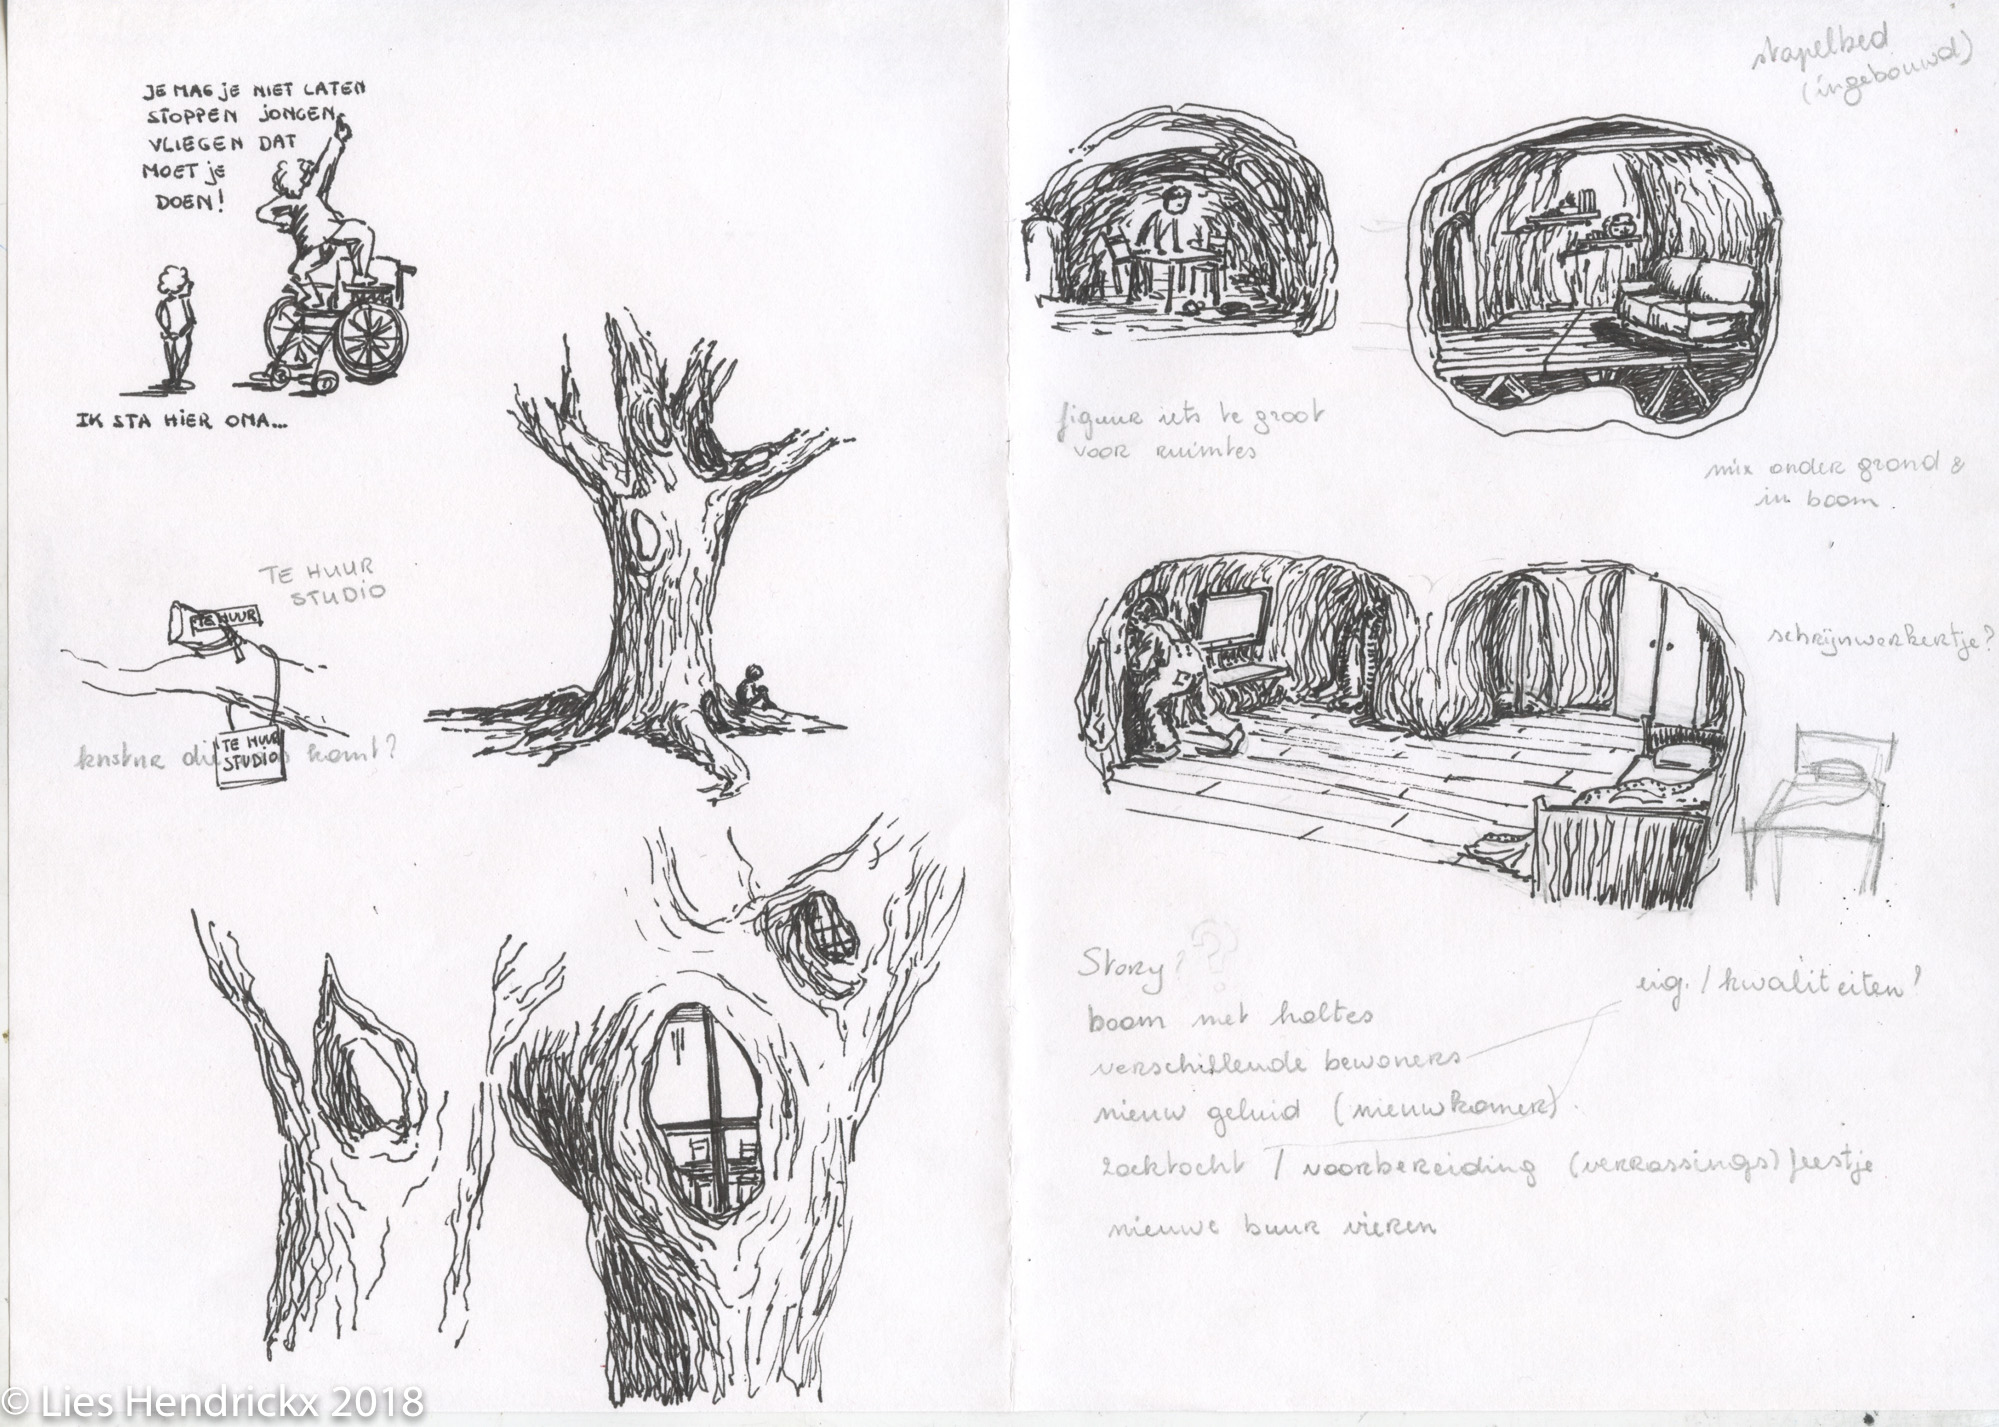 JE MAG JE NIET LATEN
STOPPEN JONGEN,
VLIEGEN DAT
MOET JE
DOEN!
IK STA HIER OMA...
TE HUUR
STUDIO
TE HUUR
TE HUUR
STUDIO
die komt?
stapelbed
(ingebouwd)
figuur iets te groot
voor ruimtes
mix onder grond &
in boom
schrijnwerkertje?
Story?
boom met holtes
verschillende bewoners
eig. / kwaliteiten?
nieuw geluid (nieuwkomer).
zoektocht / voorbereiding (verrassings) feestje
nieuwe buur vieren
© Lies Hendrickx 2018